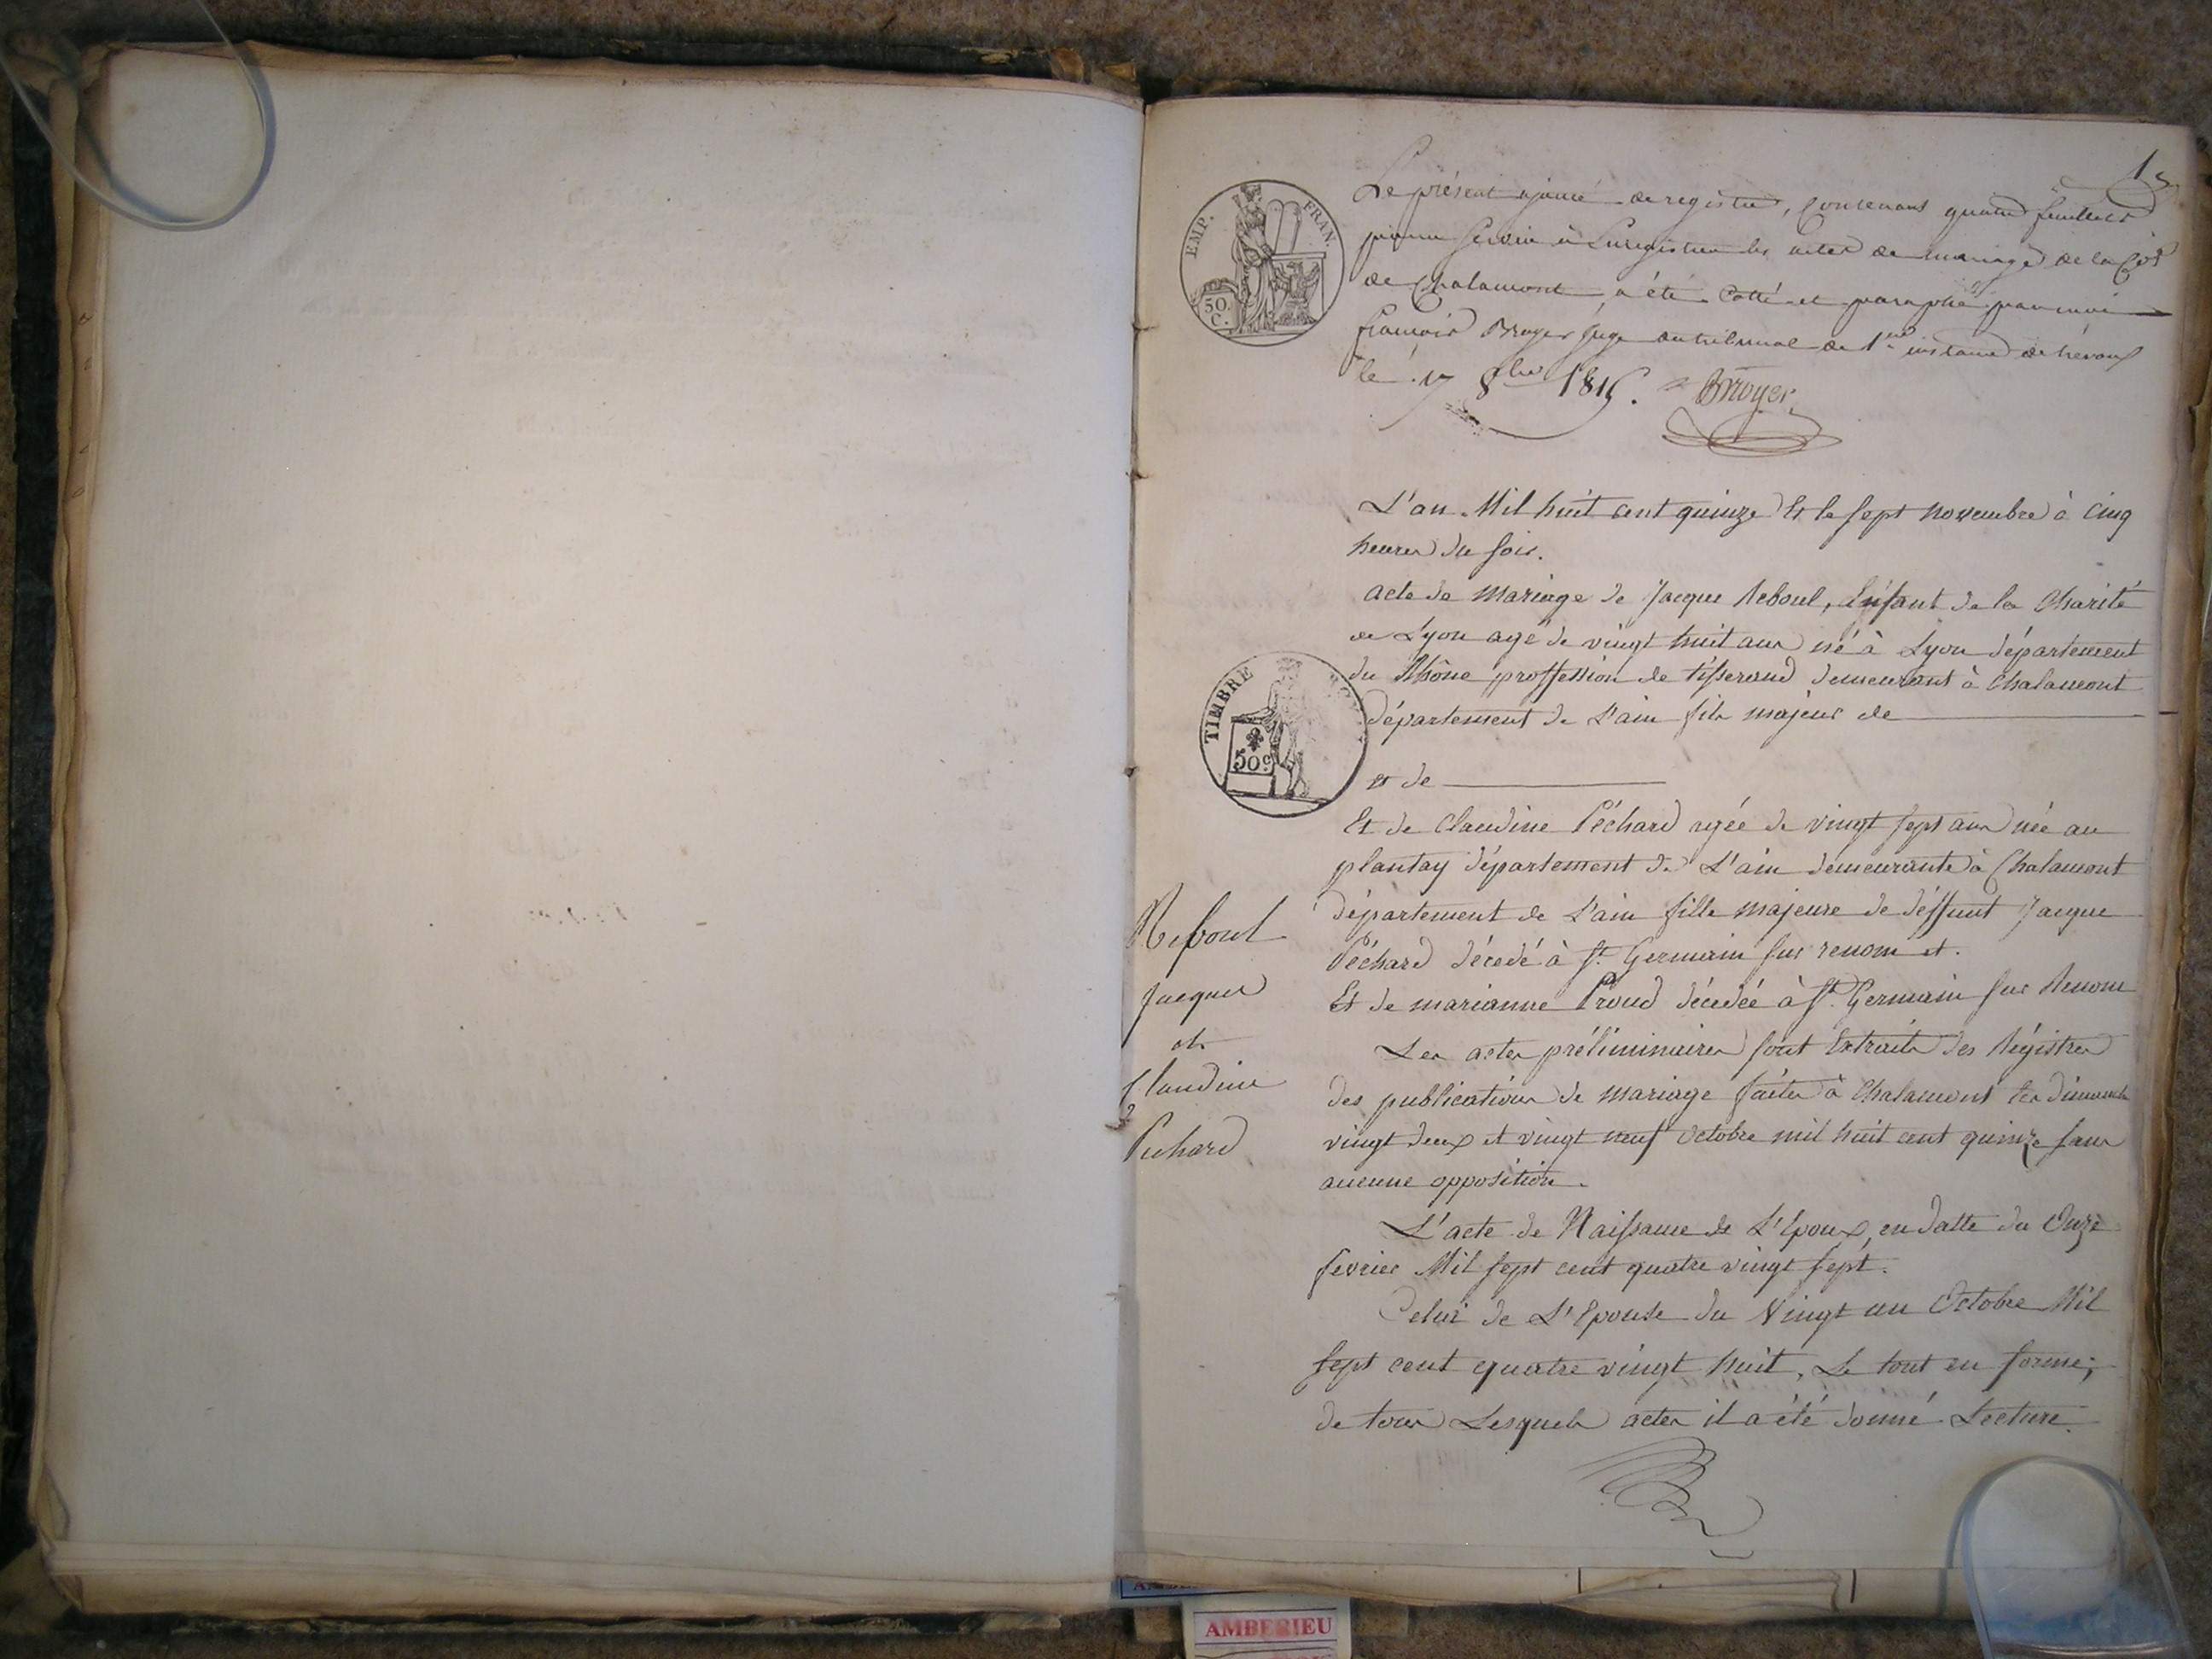 1
Le présent ajouté de registre, contenant quatre feuillets
pour servir à Enregistrer les actes de mariage de la
de Chalamont, a été cotté et paraphé par moi
François Broyer Juge au tribunal de 1ere instance de trévoux
le 17 8bre 1815. Broyer
EMP. FRAN.
50. C.
L'an Mil huit cent quinze Et le sept novembre à cinq
heures du soir.
acte de mariage de Jacque Reboul, Enfant de la Charité
de Lyon agé de vingt huit ans né à Lyon département
du Rhône proffession de tisserand demeurant à Chalamont
département de L'ain fils majeur de
et de
TIMBRE
50c
Et de Claudine Péchard agée de vingt sept ans née au
plantay département de L'ain demeurante à Chalamont
département de L'ain fille majeure de déffunt Jacque
Péchard décedé à St. Germain sur renom et.
Et de marianne Proud décedée à St. Germain sur Renom
Reboul
Jacques
et
Claudine
Péchard
Les actes préliminaires sont Extraits des Régistres
des publications de mariage faites à Chalamont les dimanche
vingt deux et vingt neuf octobre mil huit cent quinze sans
aucune opposition.
L'acte de Naissance de L'Epoux, en datte du Onze
fevrier Mil sept cent quatre vingt sept.
Celui de L'Epouse du Vingt un Octobre Mil
sept cent quatre vingt huit, Le tout en forme;
de tous Lesquels actes il a été donné Lecture.
AMBERIEU